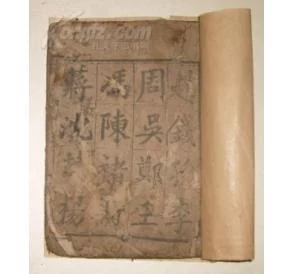 趙錢孫李
周吳鄭王
馮陳褚衛
蔣沈韓楊